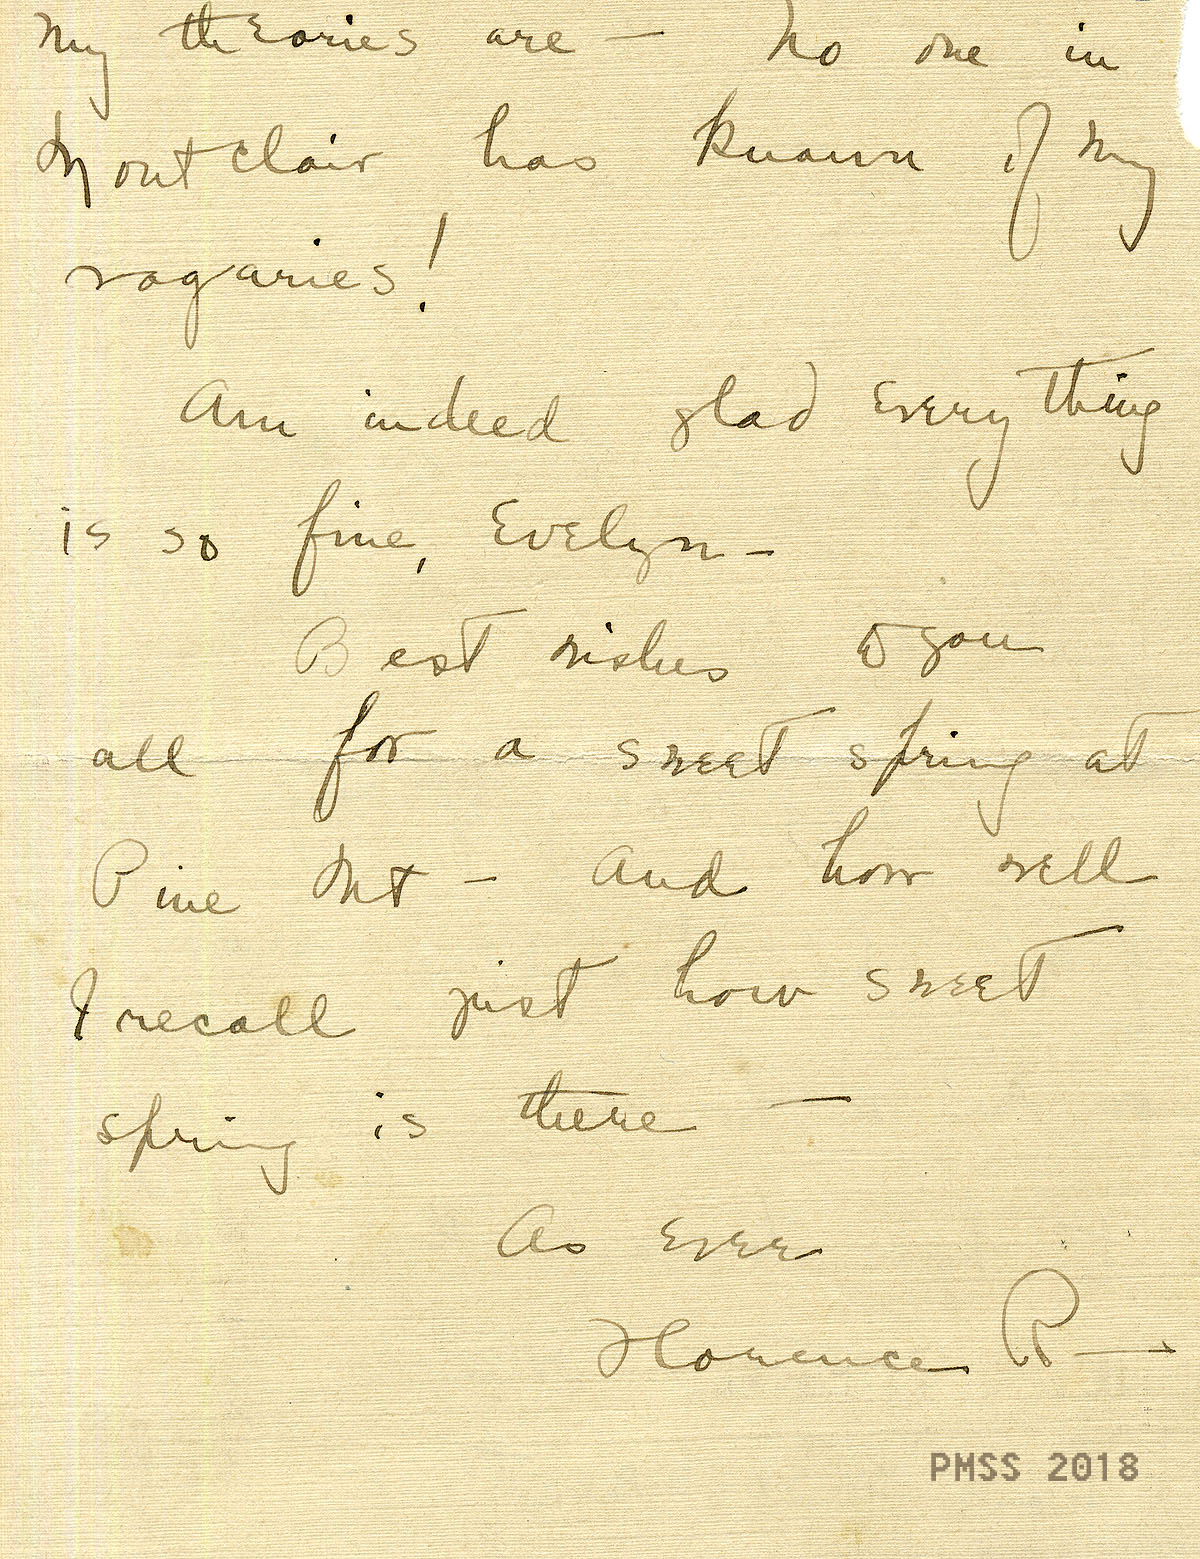 My theories are — No one in
Montclair has known of my
vagaries!
Am indeed glad everything
is so fine, Evelyn —
Best wishes to you
all for a sweet spring at
Pine Mt — And how well
I recall just how sweet
spring is there —
As ever
Florence R —
PMSS 2018